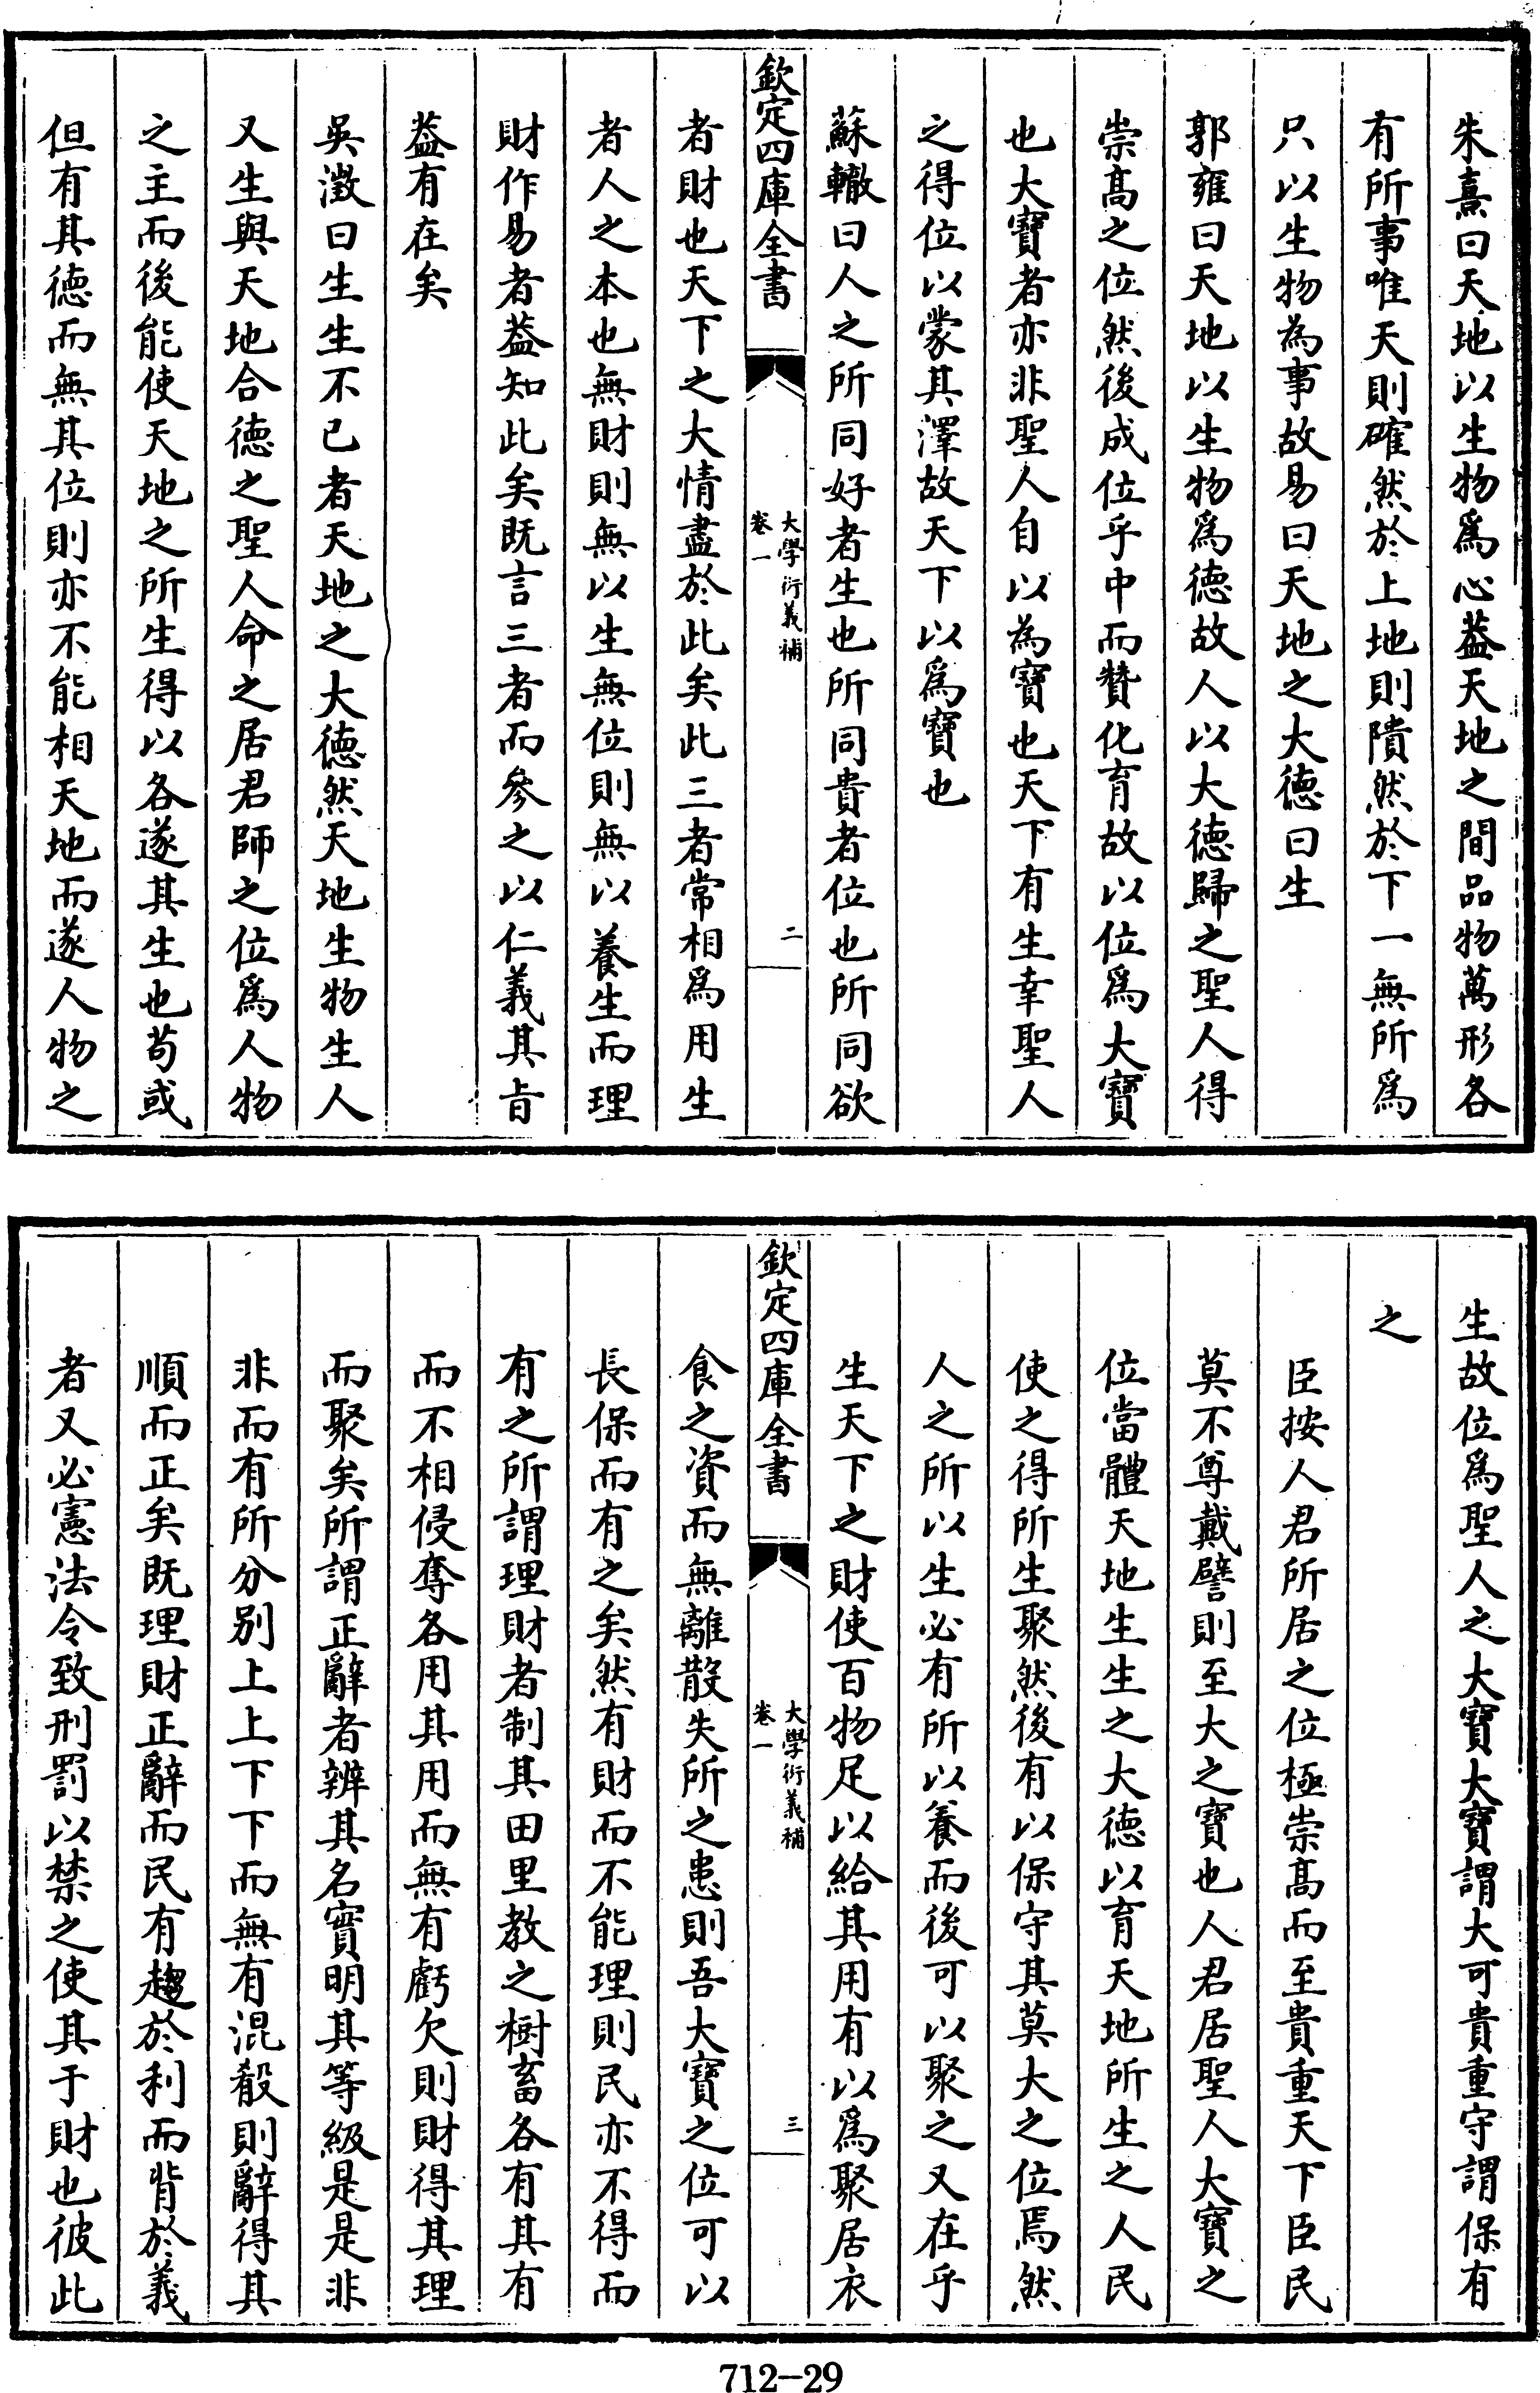 朱熹曰天地以生物爲心葢天地之間品物萬形各
有所事唯天則確然於上地則隤然於下一無所爲
只以生物為事故易曰天地之大德曰生
郭雍曰天地以生物爲德故人以大德歸之聖人得
崇髙之位然後成位乎中而贊化育故以位爲大寶
也大寶者亦非聖人自以為寶也天下有生幸聖人
之得位以蒙其澤故天下以爲寶也
蘇轍曰人之所同好者生也所同貴者位也所同欲
欽定四庫全書
大學衍義補
卷一
二
者財也天下之大情盡於此矣此三者常相爲用生
者人之本也無財則無以生無位則無以養生而理
財作易者葢知此矣既言三者而參之以仁義其旨
葢有在矣
吳澂曰生生不已者天地之大德然天地生物生人
又生與天地合德之聖人命之居君師之位爲人物
之主而後能使天地之所生得以各遂其生也苟或
但有其德而無其位則亦不能相天地而遂人物之
生故位爲聖人之大寶大寶謂大可貴重守謂保有
之
臣按人君所居之位極崇髙而至貴重天下臣民
莫不尊戴譬則至大之寶也人君居聖人大寶之
位當體天地生生之大德以育天地所生之人民
使之得所生聚然後有以保守其莫大之位焉然
人之所以生必有所以養而後可以聚之又在乎
生天下之財使百物足以給其用有以爲聚居衣
欽定四庫全書
大學衍義補
卷一
三
食之資而無離散失所之患則吾大寶之位可以
長保而有之矣然有財而不能理則民亦不得而
有之所謂理財者制其田里教之樹畜各有其有
而不相侵奪各用其用而無有虧欠則財得其理
而聚矣所謂正辭者辨其名實明其等級是是非
非而有所分別上上下下而無有混殽則辭得其
順而正矣既理財正辭而民有趨於利而背於義
者又必憲法令致刑罰以禁之使其于財也彼此
712-29